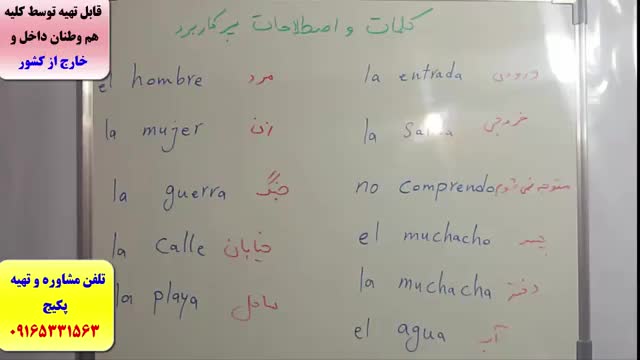 قابل تهیه توسط کلیه
هم وطنان داخل و
خارج از کشور
کلمات و اصطلاحات پرکاربرد
el hombre مرد
la mujer زن
la guerra جنگ
la calle خیابان
la playa ساحل
la entrada ورودی
la salida خروجی
no comprendo متوجه نمی شوم
el muchacho پسر
la muchacha دختر
el agua آب
تلفن مشاوره و تهیه
پکیج
۰۹۱۶۵۳۳۱۵۶۳